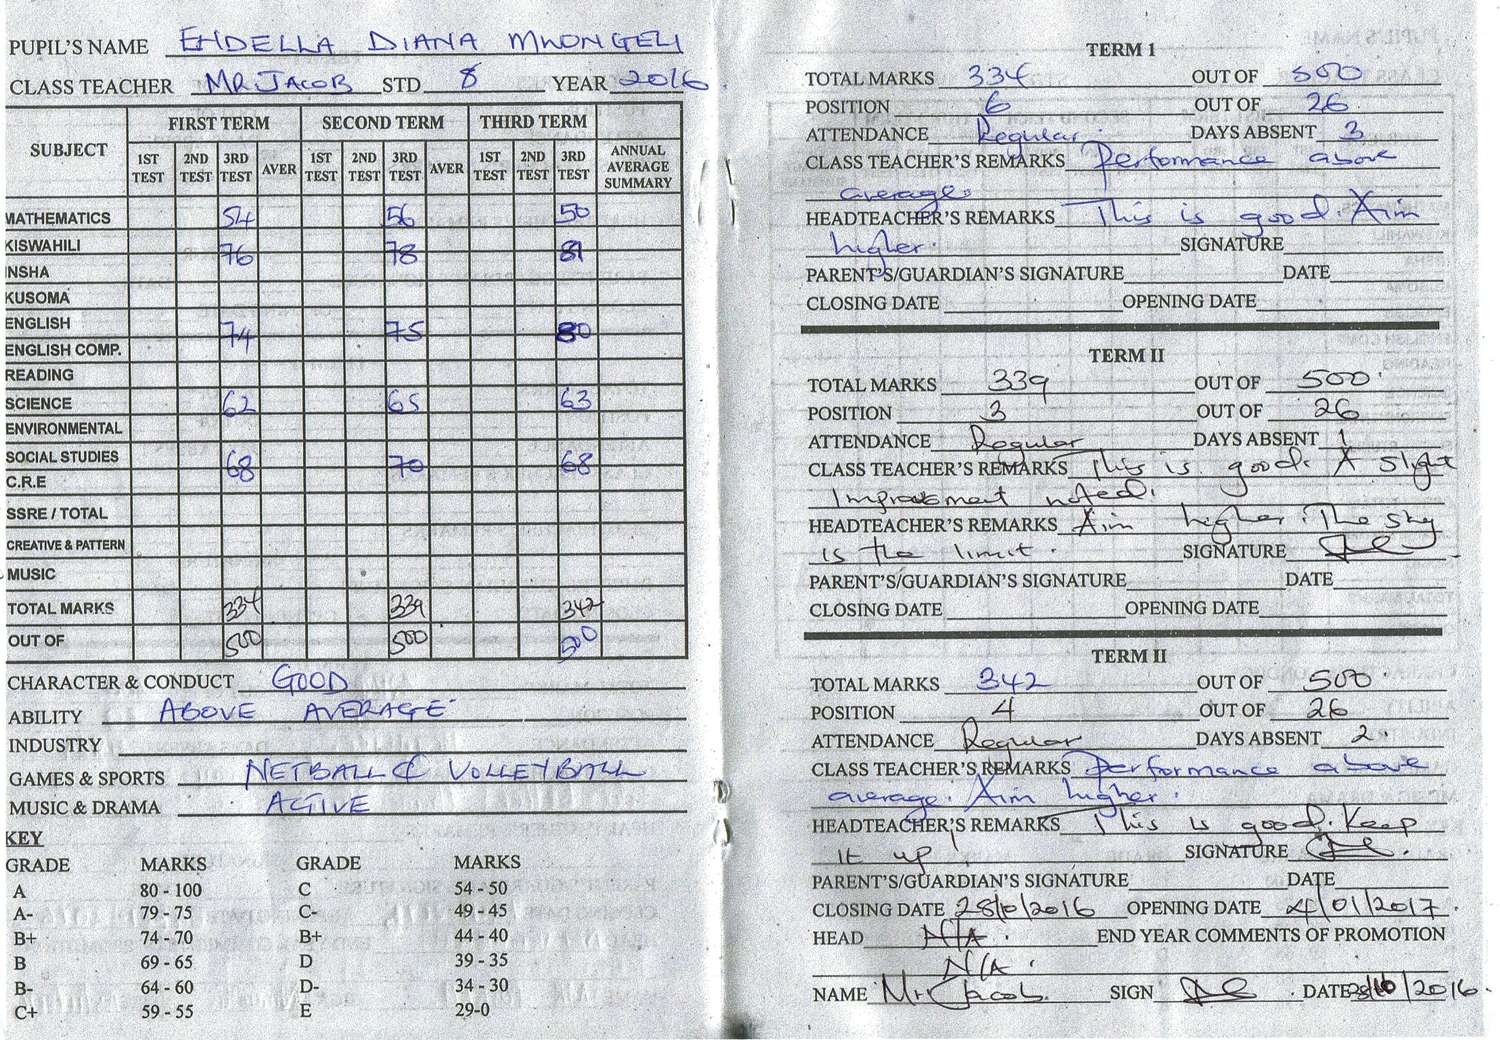 PUPIL'S NAME ENDELLA DIANA MWONGELI
CLASS TEACHER MR JACOB STD 8 YEAR 2016
SUBJECT FIRST TERM SECOND TERM THIRD TERM
1ST TEST 2ND TEST 3RD TEST AVER 1ST TEST 2ND TEST 3RD TEST AVER 1ST TEST 2ND TEST 3RD TEST ANNUAL AVERAGE SUMMARY
MATHEMATICS 54 56 50
KISWAHILI 76 78 81
INSHA
KUSOMA
ENGLISH 74 75 80
ENGLISH COMP.
READING
SCIENCE 62 65 63
ENVIRONMENTAL
SOCIAL STUDIES 68 70 68
C.R.E
SSRE / TOTAL
CREATIVE & PATTERN
MUSIC
TOTAL MARKS 334 339 342
OUT OF 500 500 500
CHARACTER & CONDUCT GOOD
ABILITY ABOVE AVERAGE
INDUSTRY
GAMES & SPORTS NETBALL & VOLLEYBALL
MUSIC & DRAMA ACTIVE
KEY
GRADE MARKS GRADE MARKS
A 80 - 100 C 54 - 50
A- 79 - 75 C- 49 - 45
B+ 74 - 70 B+ 44 - 40
B 69 - 65 D 39 - 35
B- 64 - 60 D- 34 - 30
C+ 59 - 55 E 29-0
TERM 1
TOTAL MARKS 334 OUT OF 500
POSITION 6 OUT OF 26
ATTENDANCE Regular. DAYS ABSENT 3
CLASS TEACHER'S REMARKS Performance above
average.
HEADTEACHER'S REMARKS This is good. Aim
higher. SIGNATURE
PARENT'S/GUARDIAN'S SIGNATURE DATE
CLOSING DATE OPENING DATE
TERM II
TOTAL MARKS 339 OUT OF 500.
POSITION 3 OUT OF 26
ATTENDANCE Regular DAYS ABSENT 1
CLASS TEACHER'S REMARKS This is good. A slight
Improvement noted.
HEADTEACHER'S REMARKS Aim higher. The sky
is the limit. SIGNATURE
PARENT'S/GUARDIAN'S SIGNATURE DATE
CLOSING DATE OPENING DATE
TERM II
TOTAL MARKS 342 OUT OF 500.
POSITION 4 OUT OF 26
ATTENDANCE Regular DAYS ABSENT 2.
CLASS TEACHER'S REMARKS Performance above
average. Aim higher.
HEADTEACHER'S REMARKS This is good. Keep
it up! SIGNATURE
PARENT'S/GUARDIAN'S SIGNATURE DATE
CLOSING DATE 28/10/2016 OPENING DATE 4/01/2017.
HEAD N/A. END YEAR COMMENTS OF PROMOTION
N/A.
NAME Mr. Jacob. SIGN DATE 28/10/2016.